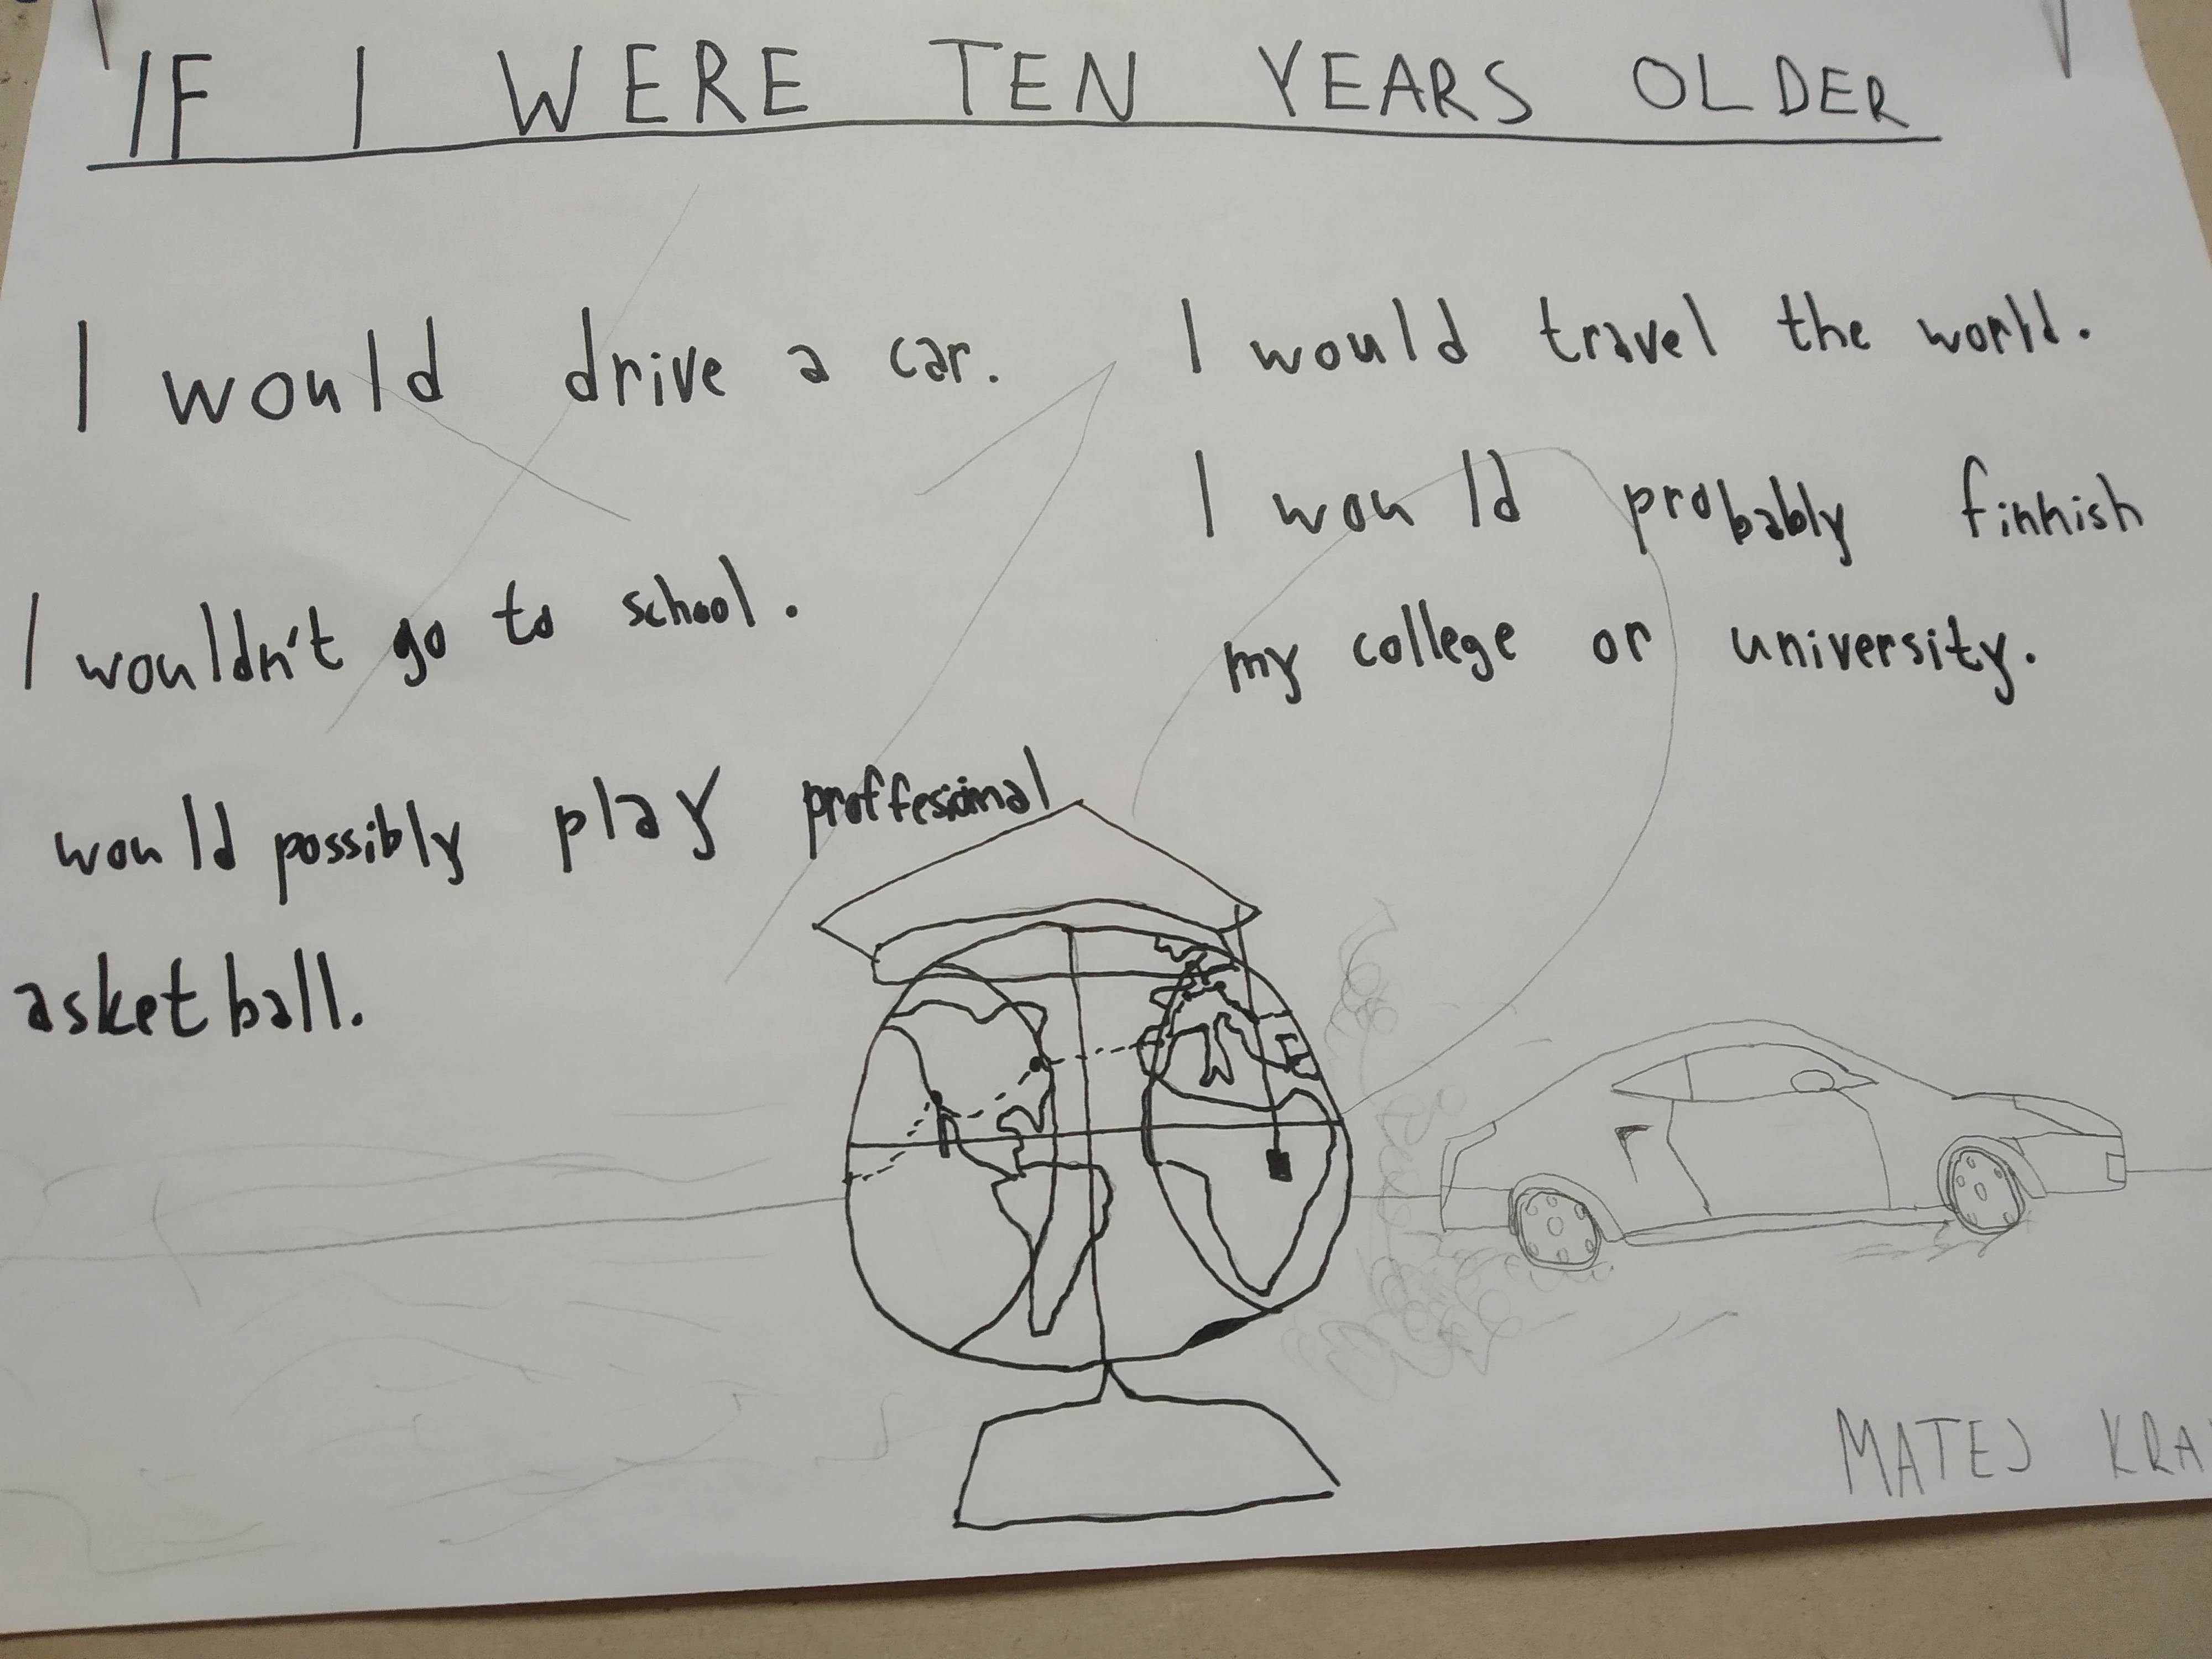 IF I WERE TEN YEARS OLDER
I would drive a car.
I wouldn't go to school.
would possibly play proffesional
asketball.
I would travel the world.
I would probably finnish
my college or university.
MATEJ KRA